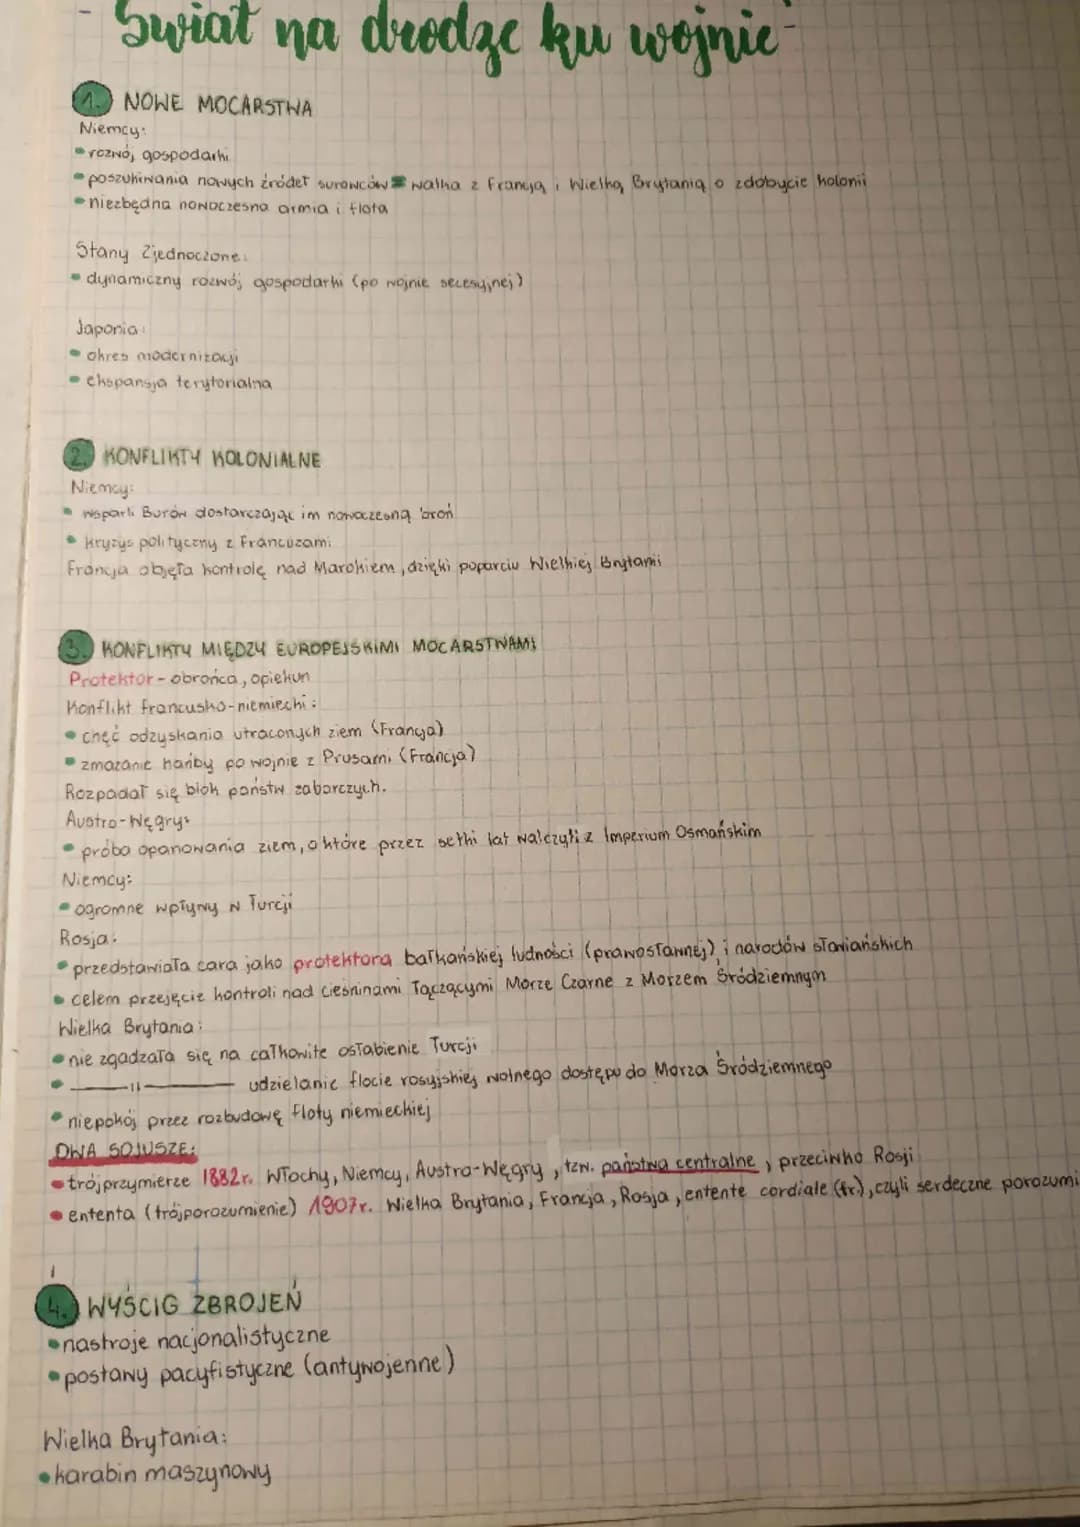 - Świat na drodze ku wojnie -
1. NOWE MOCARSTWA
Niemcy:
• rozwój gospodarki
• poszukiwania nowych źródeł surowców = walka z Francją i Wielką Brytanią o zdobycie kolonii
• niezbędna nowoczesna armia i flota
Stany Zjednoczone:
• dynamiczny rozwój gospodarki (po wojnie secesyjnej)
Japonia:
• okres modernizacji
• ekspansja terytorialna
2. KONFLIKTY KOLONIALNE
Niemcy:
• wsparli Burów dostarczając im nowoczesną broń
• kryzys polityczny z Francuzami
Francja objęła kontrolę nad Marokiem, dzięki poparciu Wielkiej Brytanii
3. KONFLIKTY MIĘDZY EUROPEJSKIMI MOCARSTWAMI
Protektor - obrońca, opiekun
Konflikt francusko-niemiecki:
• chęć odzyskania utraconych ziem (Francja)
• zmazanie hańby po wojnie z Prusami (Francja)
Rozpadał się blok państw zaborczych.
Austro-Węgry:
• próba opanowania ziem, o które przez setki lat walczyli z Imperium Osmańskim
Niemcy:
• ogromne wpływy w Turcji
Rosja:
• przedstawiała cara jako protektora bałkańskiej ludności (prawosławnej) i narodów słowiańskich
• celem przejęcie kontroli nad cieśninami łączącymi Morze Czarne z Morzem Śródziemnym
Wielka Brytania:
• nie zgadzała się na całkowite osłabienie Turcji
• —— 11 —— udzielanie flocie rosyjskiej wolnego dostępu do Morza Śródziemnego
• niepokój przez rozbudowę floty niemieckiej
DWA SOJUSZE:
• trójprzymierze 1882r. Włochy, Niemcy, Austro-Węgry, tzw. państwa centralne, przeciwko Rosji
• ententa (trójporozumienie) 1907r. Wielka Brytania, Francja, Rosja, entente cordiale (fr.), czyli serdeczne porozumi
4. WYŚCIG ZBROJEŃ
• nastroje nacjonalistyczne
• postawy pacyfistyczne (antywojenne)
Wielka Brytania:
• karabin maszynowy